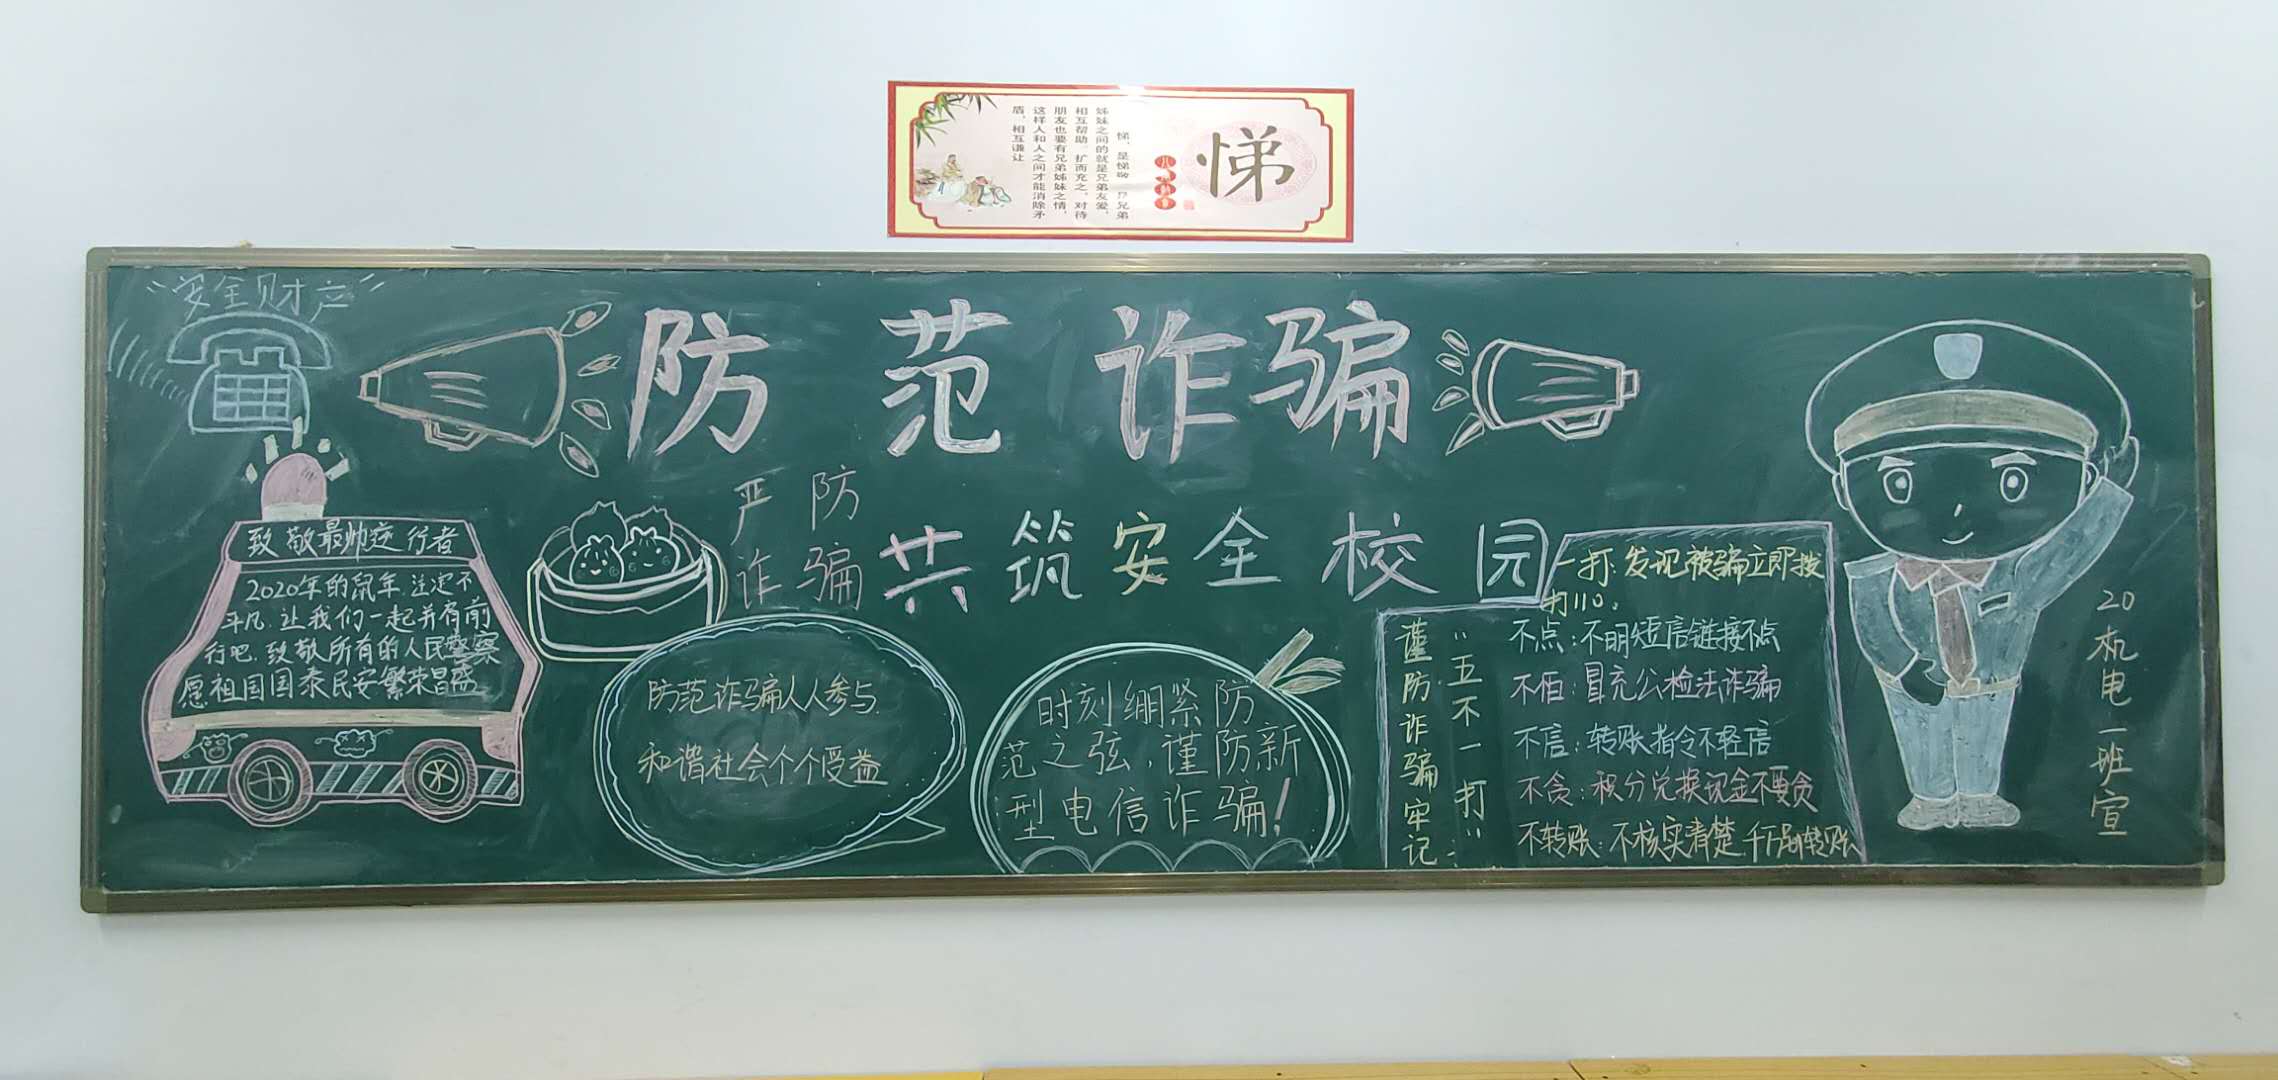 悌
姊妹之间的就是兄弟友爱，
相互帮助。扩而充之，对待
朋友也要有兄弟姊妹之情，
这样人和人之间才能消除矛
盾，相互谦让
“安全财产”
防范诈骗
严防
诈骗
共筑安全校园
致敬最帅逆行者
2020年的鼠年，注定不
平凡，让我们一起并肩前
行吧，致敬所有的人民警察
愿祖国国泰民安繁荣昌盛
防范诈骗人人参与，
和谐社会个个受益
时刻绷紧防
范之弦，谨防新
型电信诈骗！
谨防诈骗牢记：
“五不一打”
一打：发现被骗立即拨
打110。
不点：不明短信链接不点
不信：冒充公检法诈骗
不信：转账指令不轻信
不贪：积分兑换现金不要贪
不转账：不核实清楚，不转账
20机电一班宣